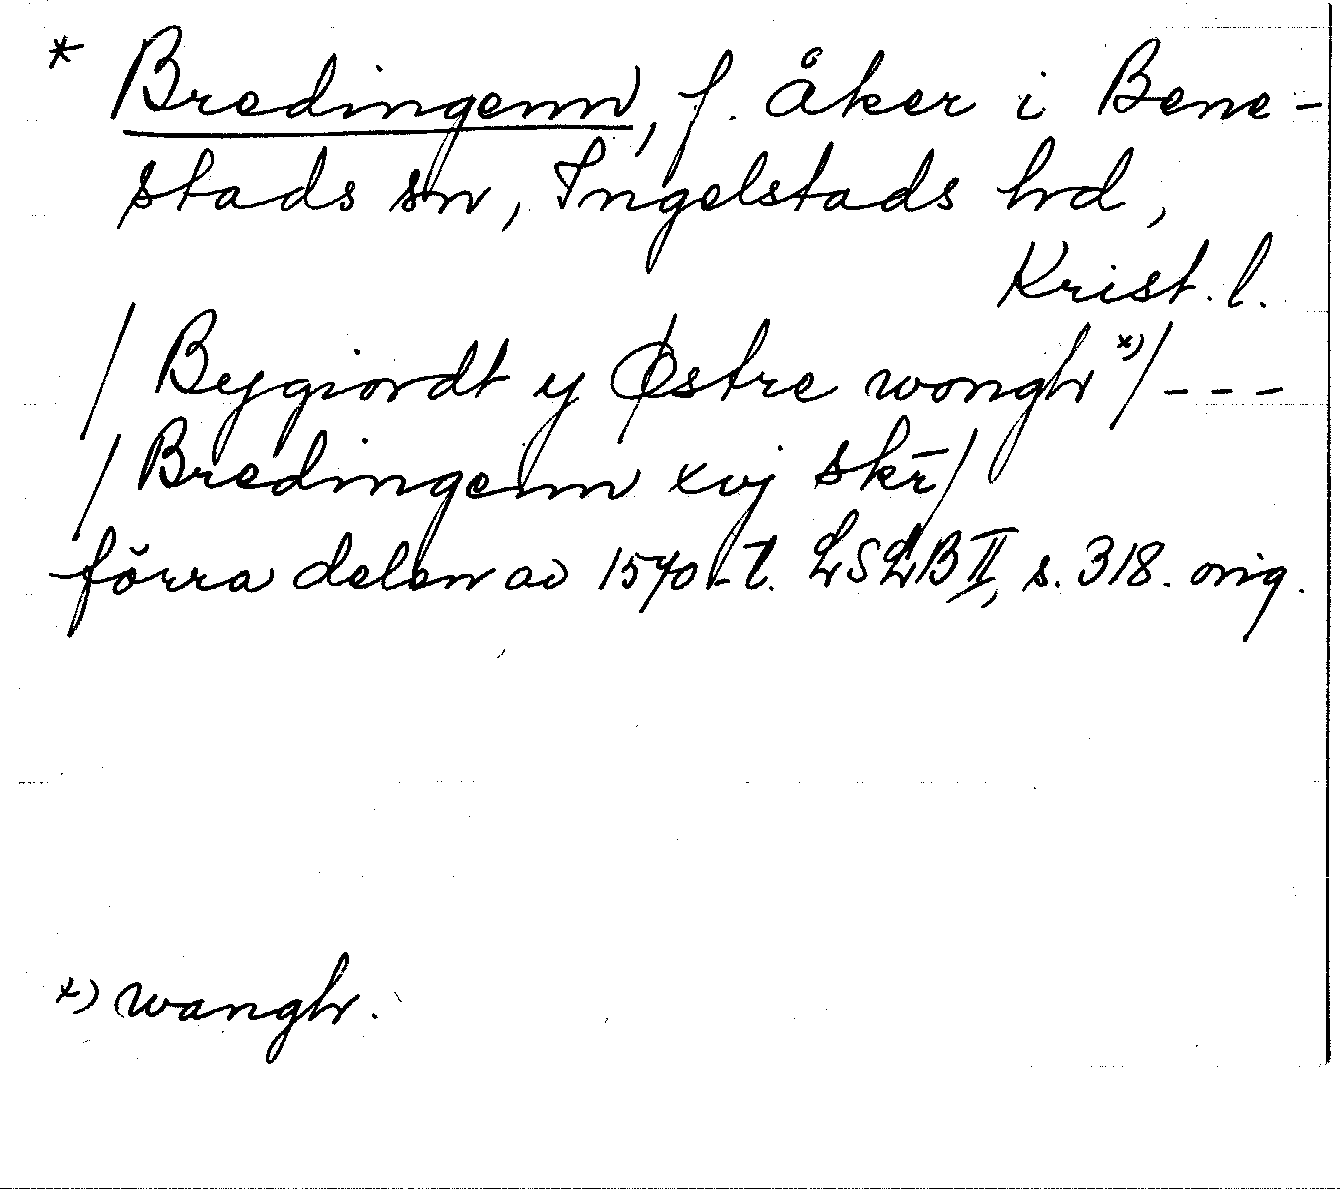 * Bredingenn, f. åker i Bene-
stads sn, Ingelstads hd,
Krist. l.
/ Bygiordt y Østre wongh x) / ---
/ Bredingenn xvj skr̄ /
förra delen av 1570-t. LSLB II, s. 318. orig.
x) wangh.